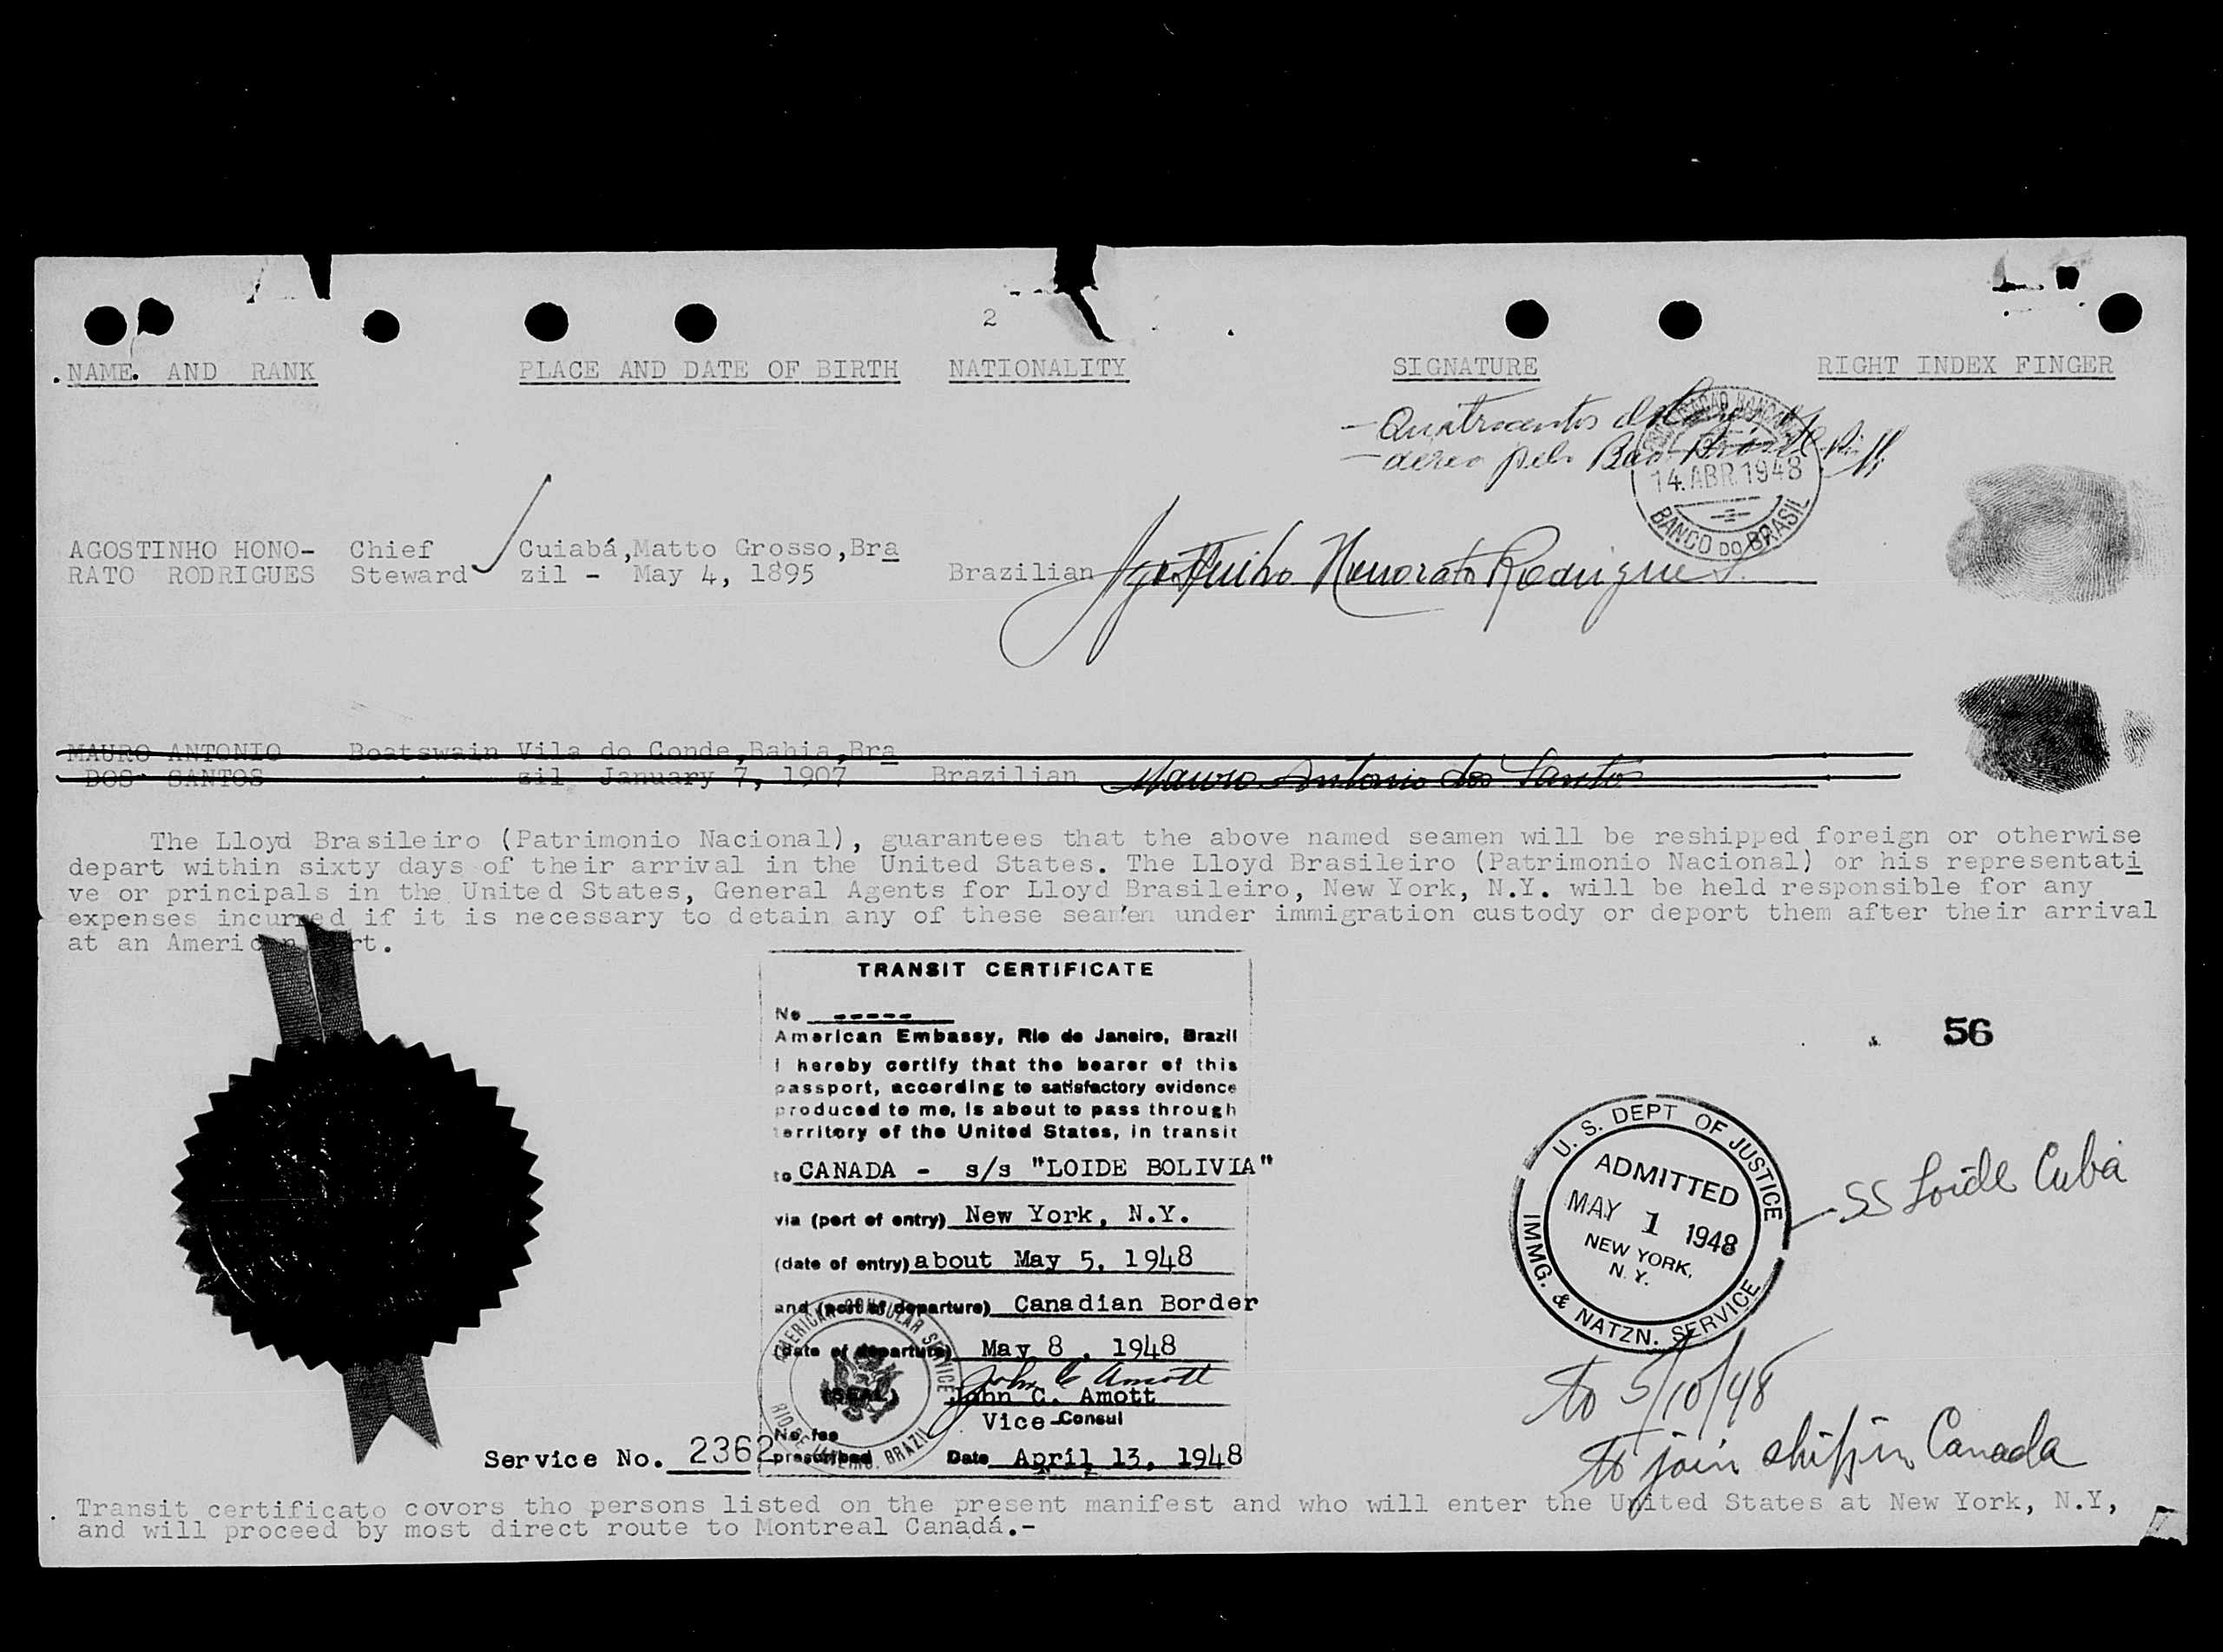 2
NAME. AND RANK PLACE AND DATE OF BIRTH NATIONALITY SIGNATURE RIGHT INDEX FINGER
- Quatrocentos
- aereo pelo
14. ABR. 1948
BANCO DO BRASIL
AGOSTINHO HONO- Chief Cuiabá,Matto Grosso,Bra
RATO RODRIGUES Steward zil - May 4, 1895 Brazilian Agostinho Honorato Rodrigues
MAURO ANTONIO Boatswain Vila do Conde,Bahia,Bra
DOS SANTOS zil January 7, 1907 Brazilian Mauro Antonio dos Santos
The Lloyd Brasileiro (Patrimonio Nacional), guarantees that the above named seamen will be reshipped foreign or otherwise
depart within sixty days of their arrival in the United States. The Lloyd Brasileiro (Patrimonio Nacional) or his representati
ve or principals in the United States, General Agents for Lloyd Brasileiro, New York, N.Y. will be held responsible for any
expenses incurred if it is necessary to detain any of these seamen under immigration custody or deport them after their arrival
at an American rt.
TRANSIT CERTIFICATE
No -----
American Embassy, Rio de Janeiro, Brazil
I hereby certify that the bearer of this
passport, according to satisfactory evidence
produced to me, is about to pass through
territory of the United States, in transit
to CANADA - s/s "LOIDE BOLIVIA"
via (port of entry) New York, N.Y.
(date of entry) about May 5, 1948
and (port of departure) Canadian Border
(date of departure) May 8, 1948
(SEAL) John C. Amott
John C. Amott
Vice Consul
No fee
prescribed Date April 13, 1948
AMERICAN CONSULAR SERVICE
RIO DE JANEIRO, BRAZIL
Service No. 2362
56
U. S. DEPT OF JUSTICE
ADMITTED
MAY 1 1948
NEW YORK,
N. Y.
IMMG. & NATZN. SERVICE
SS Loide Cuba
to 5/10/48
to join ship in Canada
Transit certificato covors tho persons listed on the present manifest and who will enter the United States at New York, N.Y,
and will proceed by most direct route to Montreal Canadá.-